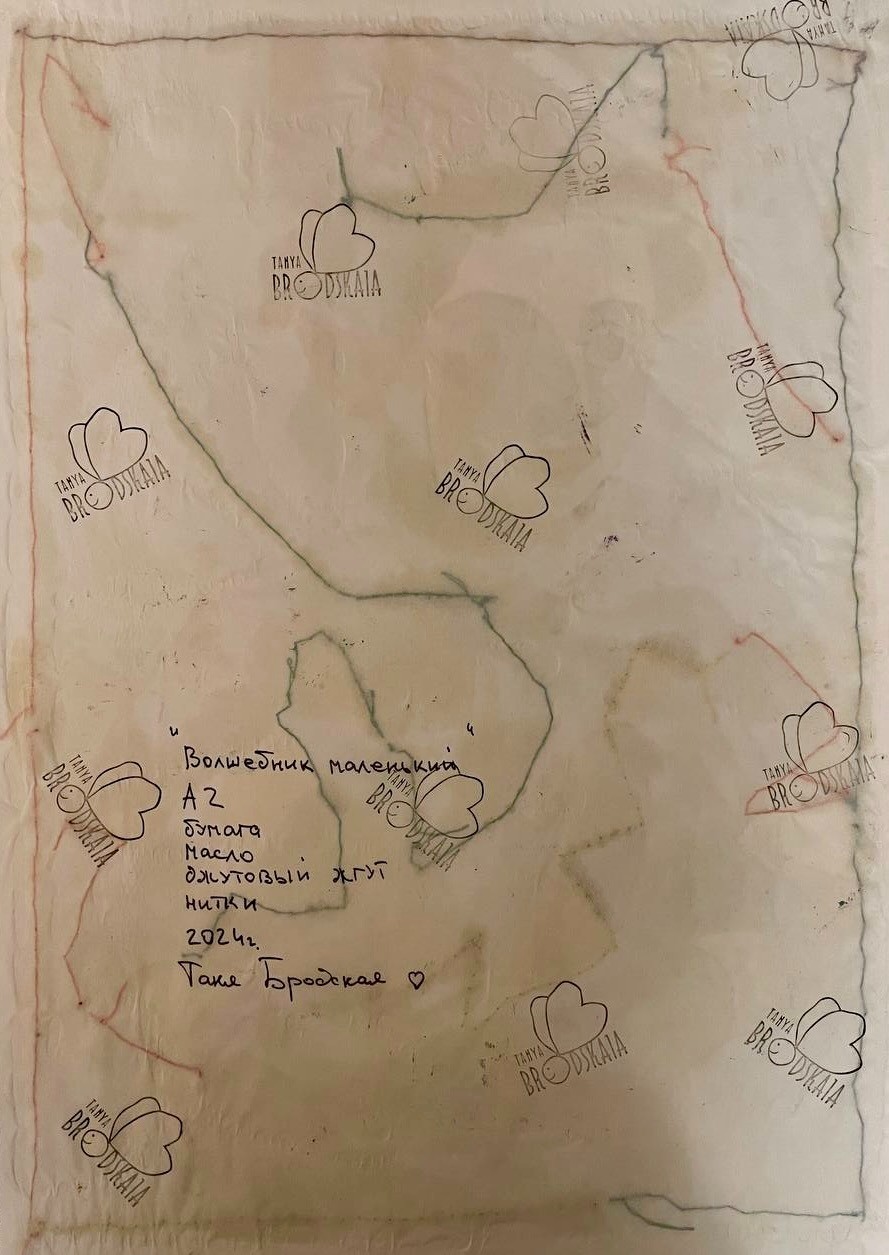 TANYA
BRODSKAIA
TANYA
BRODSKAIA
TANYA
BRODSKAIA
TANYA
BRODSKAIA
TANYA
BRODSKAIA
TANYA
BRODSKAIA
"Волшебник маленький"
А2
бумага
масло
джутовый жгут
нитки
2024г.
Таня Бродская ♡
TANYA
BRODSKAIA
TANYA
BRODSKAIA
TANYA
BRODSKAIA
TANYA
BRODSKAIA
TANYA
BRODSKAIA
TANYA
BRODSKAIA